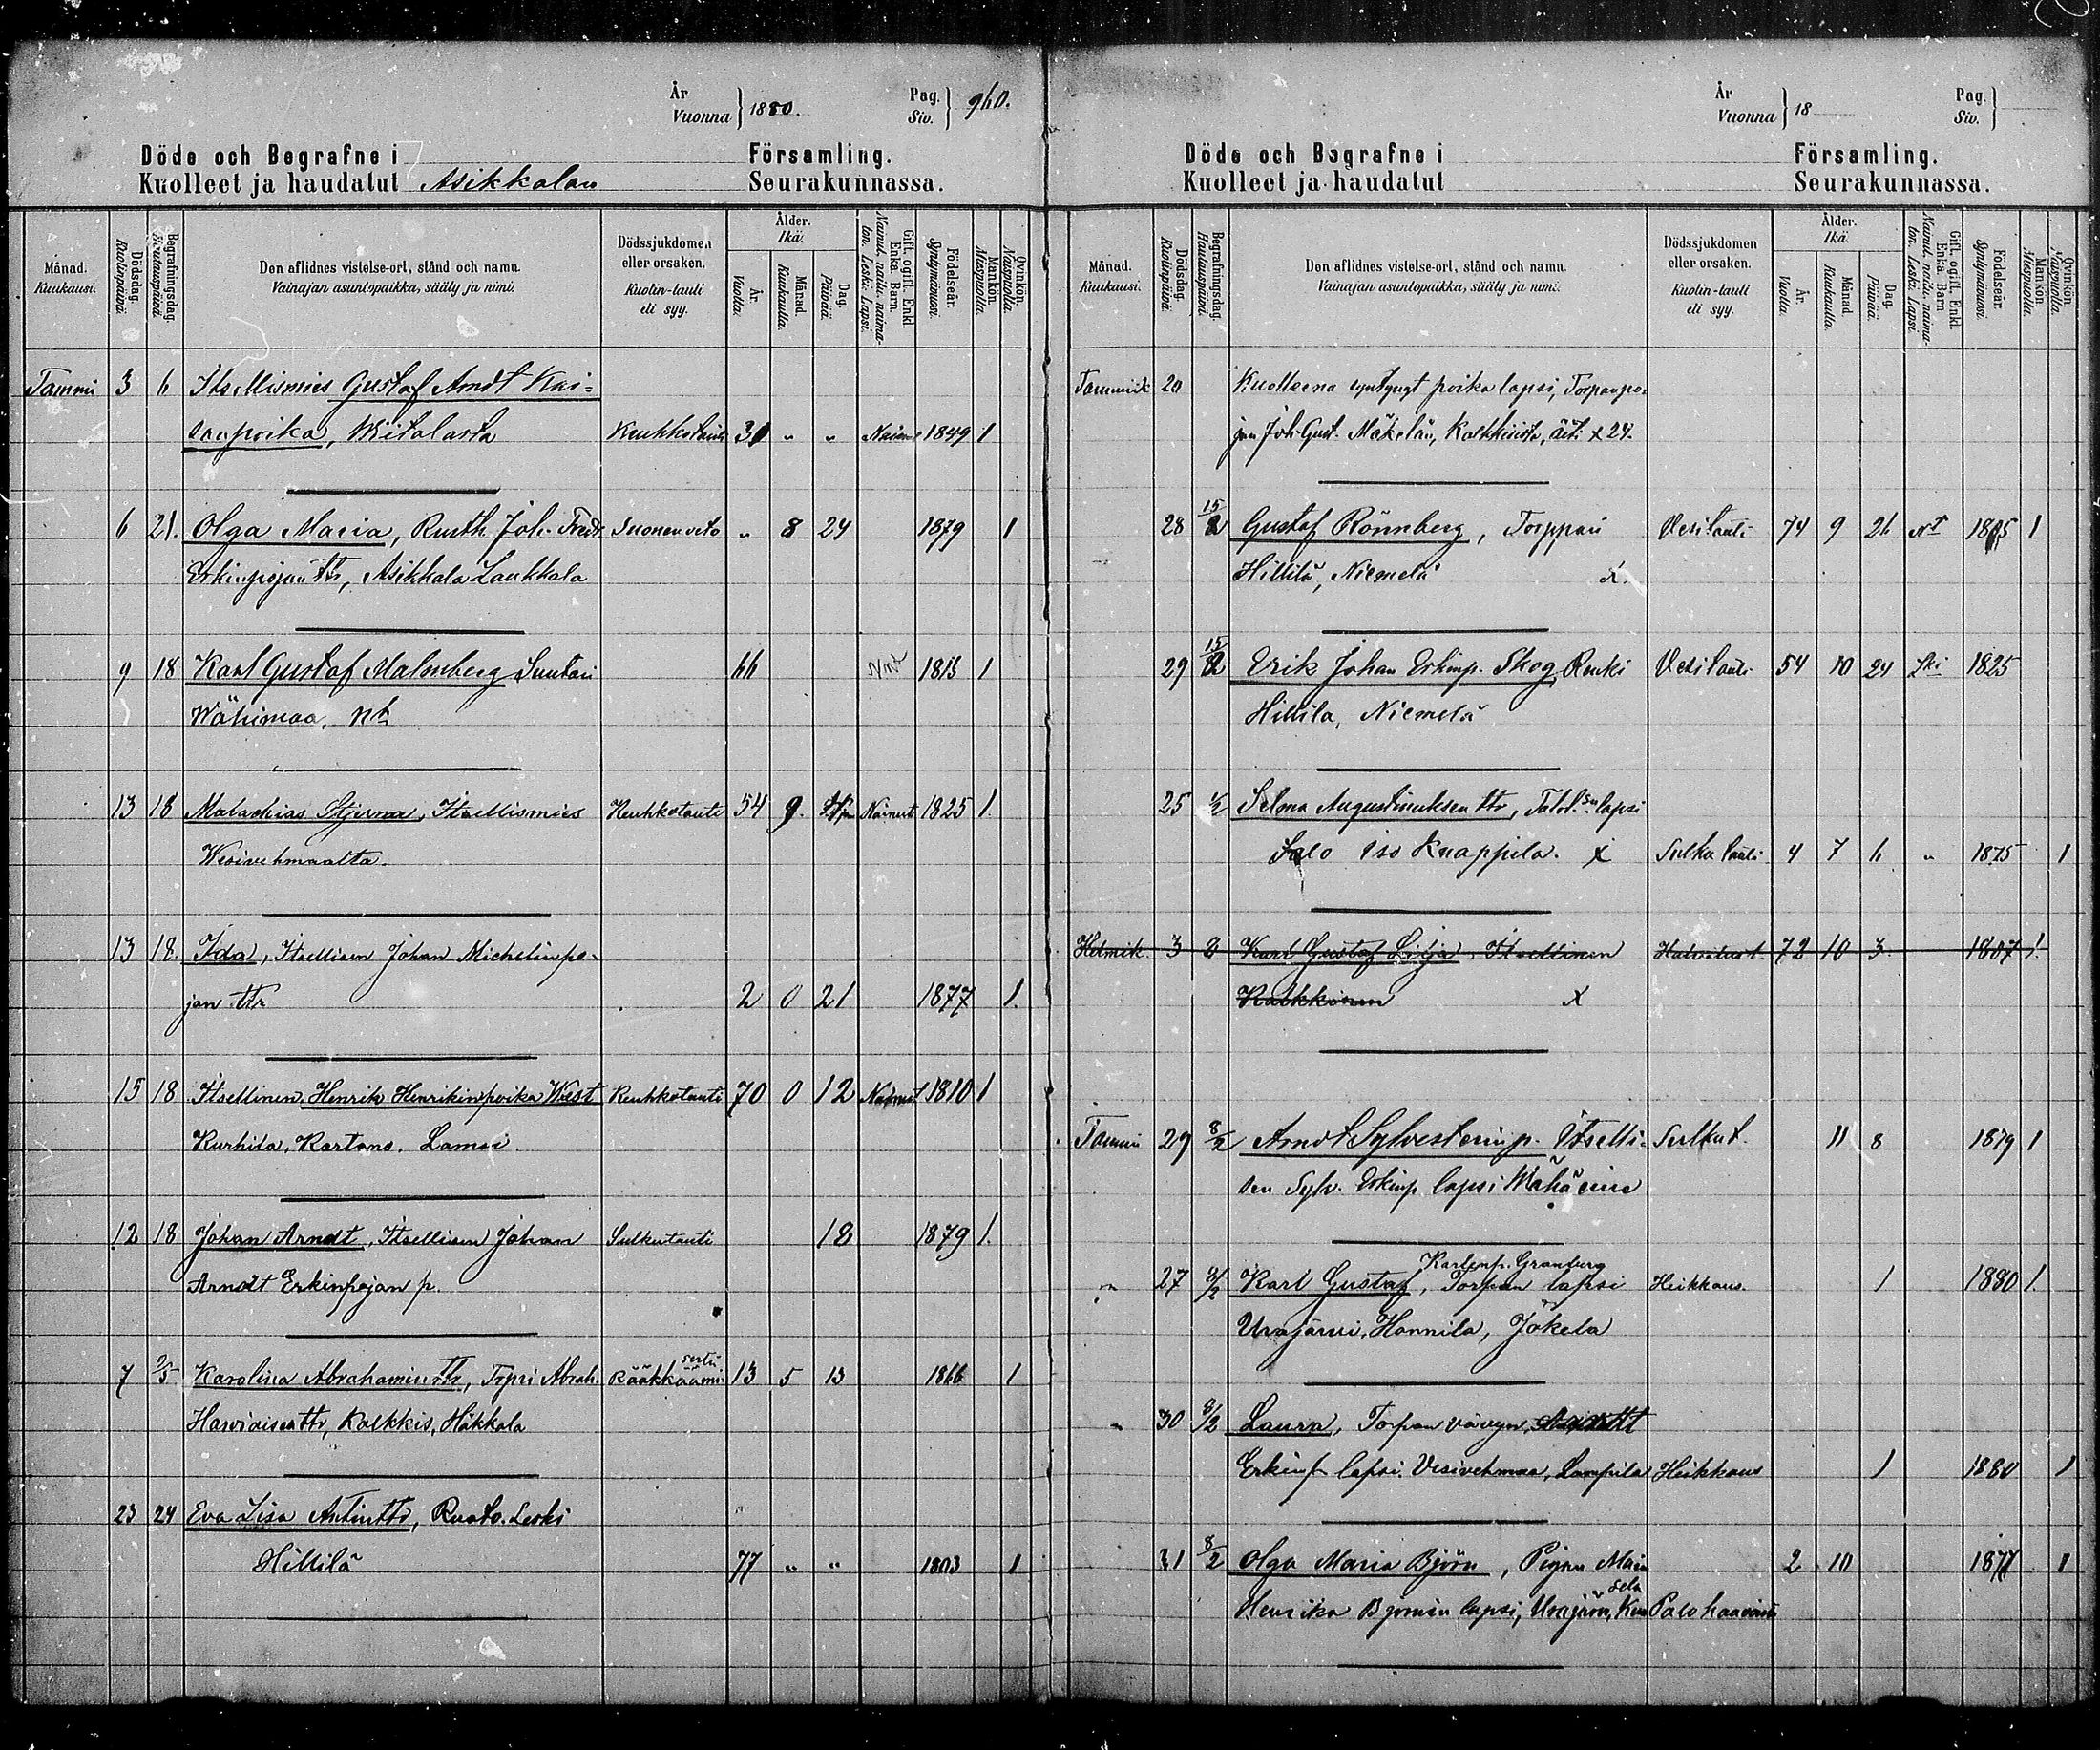 År
Vuonna 1880.
Pag.
Siv. 960.
Döde och Begrafne i Församling.
Kuolleet ja haudatut Asikkalan Seurakunnassa.
Månad. Kuukausi.
Dödsdag. Kuolinpäivä.
Begrafningsdag. Hautauspäivä.
Den aflidnes vistelse-ort, stånd och namn.
Vainajan asuntopaikka, sääty ja nimi.
Dödssjukdomen eller orsaken.
Kuolin-tauti eli syy.
Ålder. Ikä.
År. Vuotta.
Månad. Kuukautta.
Dag. Päivää.
Gift. ogift. Enkl. Enka. Barn.
Nainut. naitu. naimaton. Leski. Lapsi.
Födelseår. Syntymävuosi.
Mankön. Miespuolia.
Qvinkön. Naispuolia.
Tammi 3 6 Itsellismies Gustaf Arndt Kai=
sanpoika, Wiitalasta Keuhkotauti 30 " " Nainut 1849 1
6 21. Olga Maria, Rusth. Joh. Fredr. Suonenveto " 8 24 1879 1
Erkinpojan ttr, Asikkala Laukkala
9 18 Karl Gustaf Malmberg Suutari 66 Nnt 1813 1
Wähimaa, nt
13 18 Malachias Stjerna, Itsellismies Keuhkotauti 54 9. Nainut 1825 1.
Wesivehmaalta.
13 18. Ida, Itsellisen Johan Michelinpo-
jan ttr 2 0 21 1877 1.
15 18 Itsellinen Henrik Henrikinpoika West Keuhkotauti 70 0 12 Nainut 1810 1
Kurhila, Kartano, Lamsi.
12 18 Johan Arndt, Itsellisen Johan Sulkutauti 18 1879 1.
Arndt Erkinpojan p.
7 2/5 Karolina Abrahamin ttr, Trpri Abrah. 13 5 13 1866 1
Harvoisen ttr, Kalkkis, Häkkala
23 24 Eva Lisa Antin ttr, Ruoto. Leski
Hillilä 77 " " 1803 1
År
Vuonna 18
Pag.
Siv.
Döde och Begrafne i Församling.
Kuolleet ja haudatut Seurakunnassa.
Månad. Kuukausi.
Dödsdag. Kuolinpäivä.
Begrafningsdag. Hautauspäivä.
Den aflidnes vistelse-ort, stånd och namn.
Vainajan asuntopaikka, sääty ja nimi.
Dödssjukdomen eller orsaken.
Kuolin-tauti eli syy.
Ålder. Ikä.
År. Vuotta.
Månad. Kuukautta.
Dag. Päivää.
Gift. ogift. Enkl. Enka. Barn
Nainut. naitu. naimaton. Leski. Lapsi.
Födelseår. Syntymävuosi.
Mankön. Miespuolia.
Qvinkön. Naispuolia.
Tammik 20 Kuolleena syntynyt poika lapsi, Torpanpo-
jan Joh. Gust. Mäkelän, Kalkkisista, äiti x 24.
28 15/2 Gustaf Rönnberg, Torppari Vesitauti 74 9 26 nt 1805 1
Hillilä, Niemelä x.
29 15/2 Erik Johan Erkinp. Skog, Renki Vesitauti 54 10 24 Lki 1825
Hillilä, Niemelä
25 1/2 Selma Augustinuksen ttr, Talol:sen lapsi
Salo Iso Knappila. x Sulku tauti 4 7 6 " 1875 1
Helmik. 3 8 Karl Gustaf Lilja, Itsellinen Halvaus t. 72 10 3 1807 1.
Kalkkinen x
Tammi 29 8/2 Arndt Sylvesterinp. Itselli- Sulkut. 11 8 1879 1
sen Sylv. Erkinp lapsi
Karlinp. Granberg
" 27 8/2 Karl Gustaf, Torpan lapsi Heikkous. 1 1880 1.
Urajärvi, Hannila, Jokela
" 30 8/2 Laura, Torpan vävyn,
Erkinp lapsi. Vesivehmaa, Lampila Heikkous 1 1880 1
31 8/2 Olga Maria Björn, Piijan Maia 2 10 1877 1
Henrika Björnin lapsi, Urajärvi, Palohaavoista